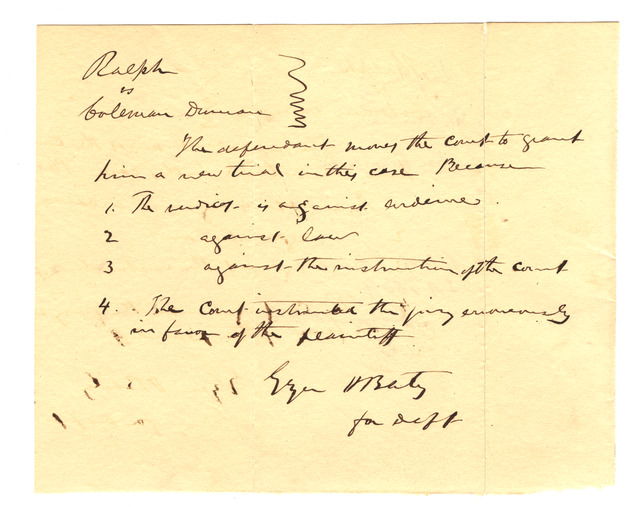 Ralph
vs
Coleman Duncan
The defendant moves the court to grant
him a new trial in this case Because
1. The verdict is against evidence.
2 against law
3 against the instruction of the court
4. The Court instructed the jury erroneously
in favor of the plaintiff
Geyer &
for deft